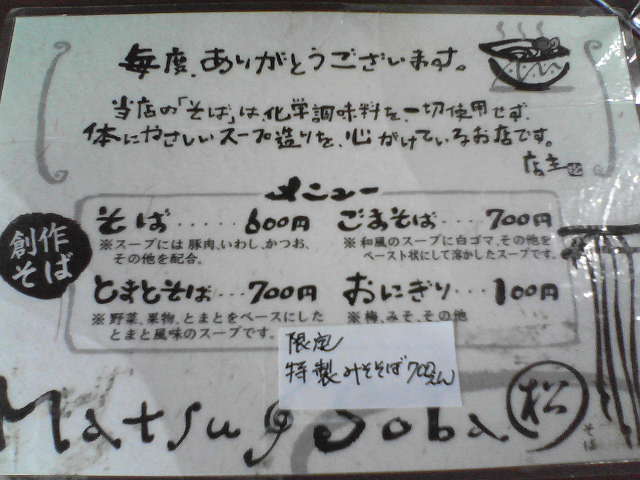 毎度、ありがとうございます。
当店の「そば」は、化学調味料を一切使用せず、
体にやさしいスープ造りを、心がけているお店です。
店主
メニュー
創作
そば
そば・・・・・600円
※スープには豚肉、いわし、かつお、
その他を配合。
ごまそば・・・700円
※和風のスープに白ゴマ、その他を
ペースト状にして溶かしたスープです。
とまとそば・・・700円
※野菜、果物、とまとをベースにした
とまと風味のスープです。
おにぎり・・・100円
※梅、みそ、その他
限定
特製みそそば700えん
Matsu Soba
松
そば